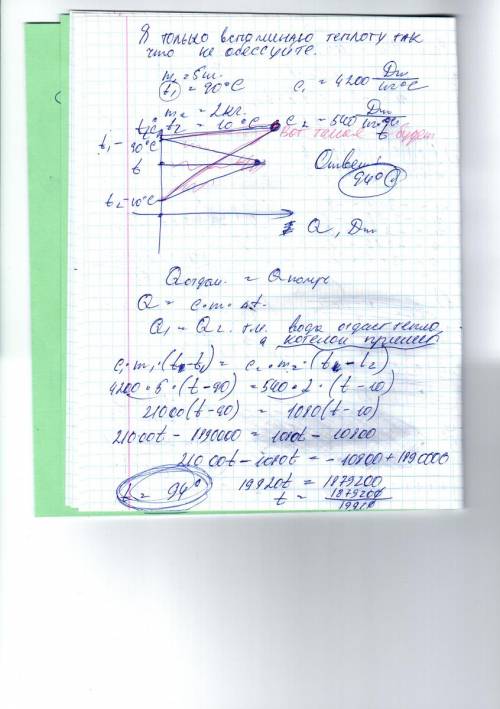 Я только вспоминаю теплоту так
что не обессудте.
m₁ = 5 кг.
t₁ = 90°C
c₁ = 4200 Дж/кг°C
m₂ = 2 кг.
t₂ = 10°C
c₂ = 540 Дж/кг·°C
t°C
Вот такая t будет
t₁ – 90°C
t
t₂ – 10°C
Ответ:
94°C
Q, Дж
Q отдам. = Q получ
Q = c·m·Δt.
Q₁ = Q₂. т.к. вода отдаст тепло,
а котелок примет
c₁·m₁·(t-t₁) = c₂·m₂·(t-t₂)
4200·5·(t-90) = 540·2·(t-10)
21000(t-90) = 1080(t-10)
21000t - 1890000 = 1080t - 10800
21000t - 1080t = -10800 + 1890000
19920t = 1879200
t = 94°
t = 1879200/19920